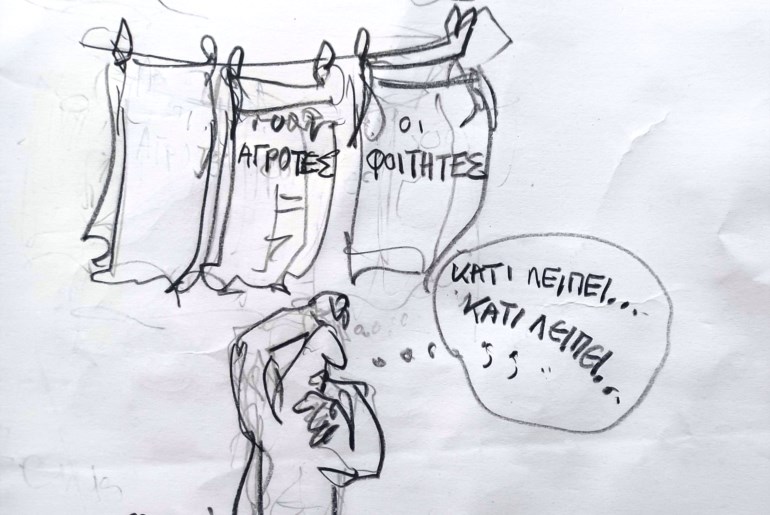 ΑΓΡΟΤΕΣ
ΟΙ
ΦΟΙΤΗΤΕΣ
ΚΑΤΙ ΛΕΙΠΕΙ...
ΚΑΤΙ ΛΕΙΠΕΙ...